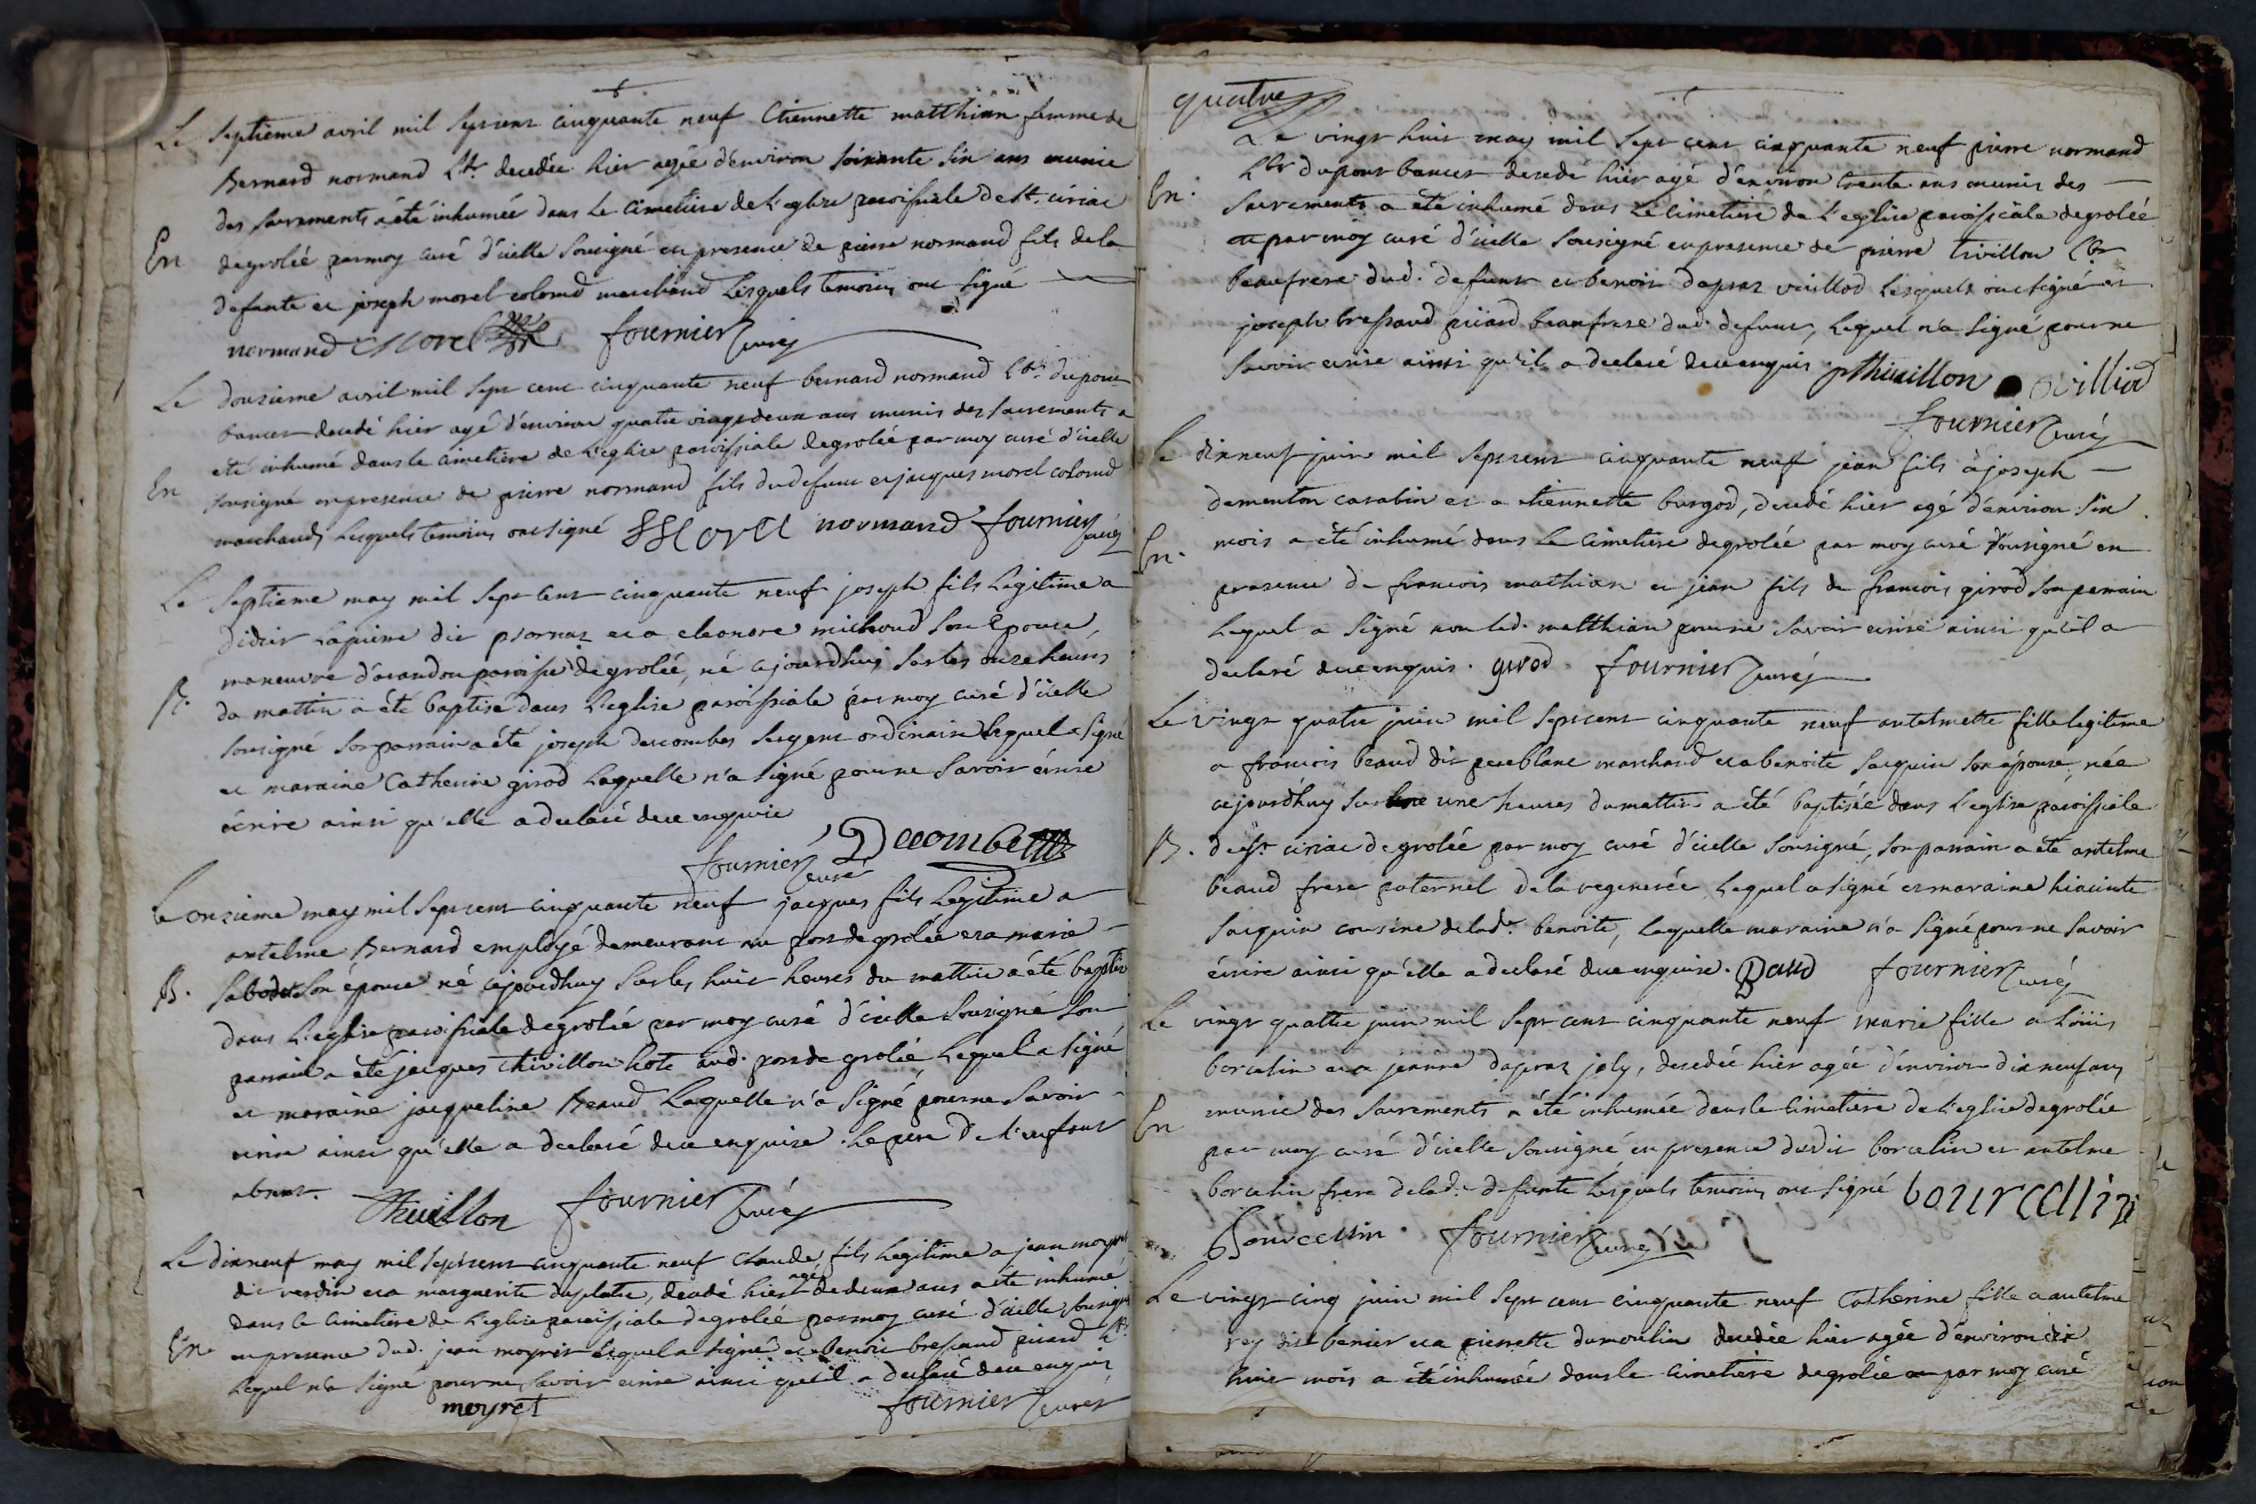 Le septieme avril mil sept cent cinquante neuf Etiennette matthian femme de
Bernard normand Lbr decedée hier agée d'environ soixante six ans munie
des sacrements a été inhumée dans Le cimetiere de L'eglise paroissiale de st. ciriac
En
de grolée par moy curé d'icelle sousigné en presence de pierre normand fils de la
defunte et joseph morel colomd marchand Lesquels temoins ont signé
normand Morel fournier curé
Le douzieme avril mil sept cent cinquante neuf bernard normand Lbr du pont
bancet decedé hier agé d'environ quatre vingt deux ans munis des sacrements a
eté inhumé dans le cimetiere de L'eglise paroissiale de grolée par moy curé d'icelle
En
sousigné en presence de pierre normand fils du defunt et jacques morel colomd
marchands Lesquels temoins ont signé Morel normand fournier curé
Le septieme may mil sept cent cinquante neuf joseph fils Legitime a
didier Lapierre dit psornaz et a eleonore michoud son Epouse,
maneuvre d'arandon paroisse de grolée, né cejourdhuy sur les onze heures
B.
du mattin a été baptisé dans L'eglise paroissiale par moy curé d'icelle
sousigné son parrain a été joseph descombes sergent ordinaire Lequel a signé
et maraine Catherine girod Laquelle n'a signé pour ne savoir écrire
écrire ainsi qu'elle a declaré de ce enquise
fournier curé Decombe
Le onzieme may mil sept cent cinquante neuf jacques fils Legitime a
antelme Bernard employé demeurant au port de grolée et a marie
B.
sabodet son épouse né cejourdhuy sur les huit heures du mattin a été baptisé
dans L'eglise paroissiale de grolée par moy curé d'icelle sousigné son
parrain a été jacques Thivillon hote aud. port de grolée Lequel a signé
et maraine jacqueline Beaud Laquelle n'a signé pour ne savoir
ecrire ainsi qu'elle a declaré de ce enquise. Le pere de l'enfant
absent. Thivillon fournier curé
Le dixneuf may mil sept cent cinquante neuf Claude fils Legitime a jean moyret
dit verdin et a marguerite duplatre, decedé hier agé de deux ans a été inhumé
dans le cimetiere de L'eglise paroissiale de grolée par moy curé d'icelle sousigné
En
en presence dud. jean moyret Lequel a signé et benoit bressand picard Lbr
Lequel n'a signé pour ne savoir ecrire ainsi qu'il a declaré de ce enquis
moyret fournier curé
quatre
Le vingt huit may mil sept cent cinquante neuf pierre normand
Lbr du pont bancet decedé hier agé d'environ trente ans munis des
En.
sacrements a été inhumé dans Le cimetiere de L'eglise paroissiale de grolée
par moy curé d'icelle sousigné en presence de pierre tivillon Lbr
beaufrere dud. defunt et benoit dupraz vuilliod Lesquels ont signé et
joseph bressand picard beaufrere dud. defunt, Lequel n'a signé pour ne
savoir ecrire ainsi qu'il a declaré de ce enquis pthivillon villiod
fournier curé
Le dixneuf juin mil sept cent cinquante neuf jean fils à joseph
dementon carabin et a etiennette burgod, decedé hier agé d'environ six
En.
mois a été inhumé dans Le cimetiere de grolée par moy curé sousigné en
presence de francois mathian et jean fils de francois girod son parrain
Lequel a signé non led. matthian pour ne savoir ecrire ainsi qu'il a
declaré de ce enquis. girod. fournier curé
Le vingt quatre juin mil sept cent cinquante neuf antelmette fille legitime
a francois beaud dit pereblanc marchand et a benoite sarquin son épouse née
cejourdhuy sur une heures du mattin a été baptisée dans L'eglise paroissiale
B.
de st ciriac de grolée par moy curé d'icelle sousigné, son parrain a été antelme
beaud frere paternel de la regenerée Lequel a signé et maraine hiacinte
sarquin cousine de lad. benoite, Laquelle maraine n'a signé pour ne savoir
écrire ainsi qu'elle a declaré de ce enquise. Baud fournier curé
Le vingt quattre juin mil sept cent cinquante neuf marie fille a Loüis
borcelin et a jeanne dupraz joly, decedée hier agée d'environ dix neuf ans
En
munie des sacrements a été inhumée dans le cimetiere de L'eglise de grolée
par moy curé d'icelle sousigné en presence dudit borcelin et antelme
borcelin frere de lad. defunte Lesquels temoins ont signé bourcelin
Bourcellin. fournier curé
Le vingt cinq juin mil sept cent cinquante neuf Catherine fille a antelme
rey dit benier et a pierrette dumoulin decedée hier agée d'environ dix
huit mois a été inhumée dans le cimetiere de grolée par moy curé